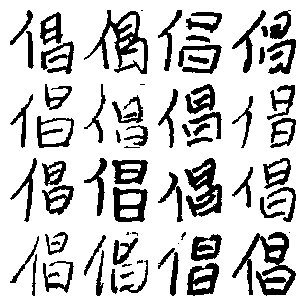 倡倡倡倡
倡倡倡倡
倡倡倡倡
倡倡倡倡